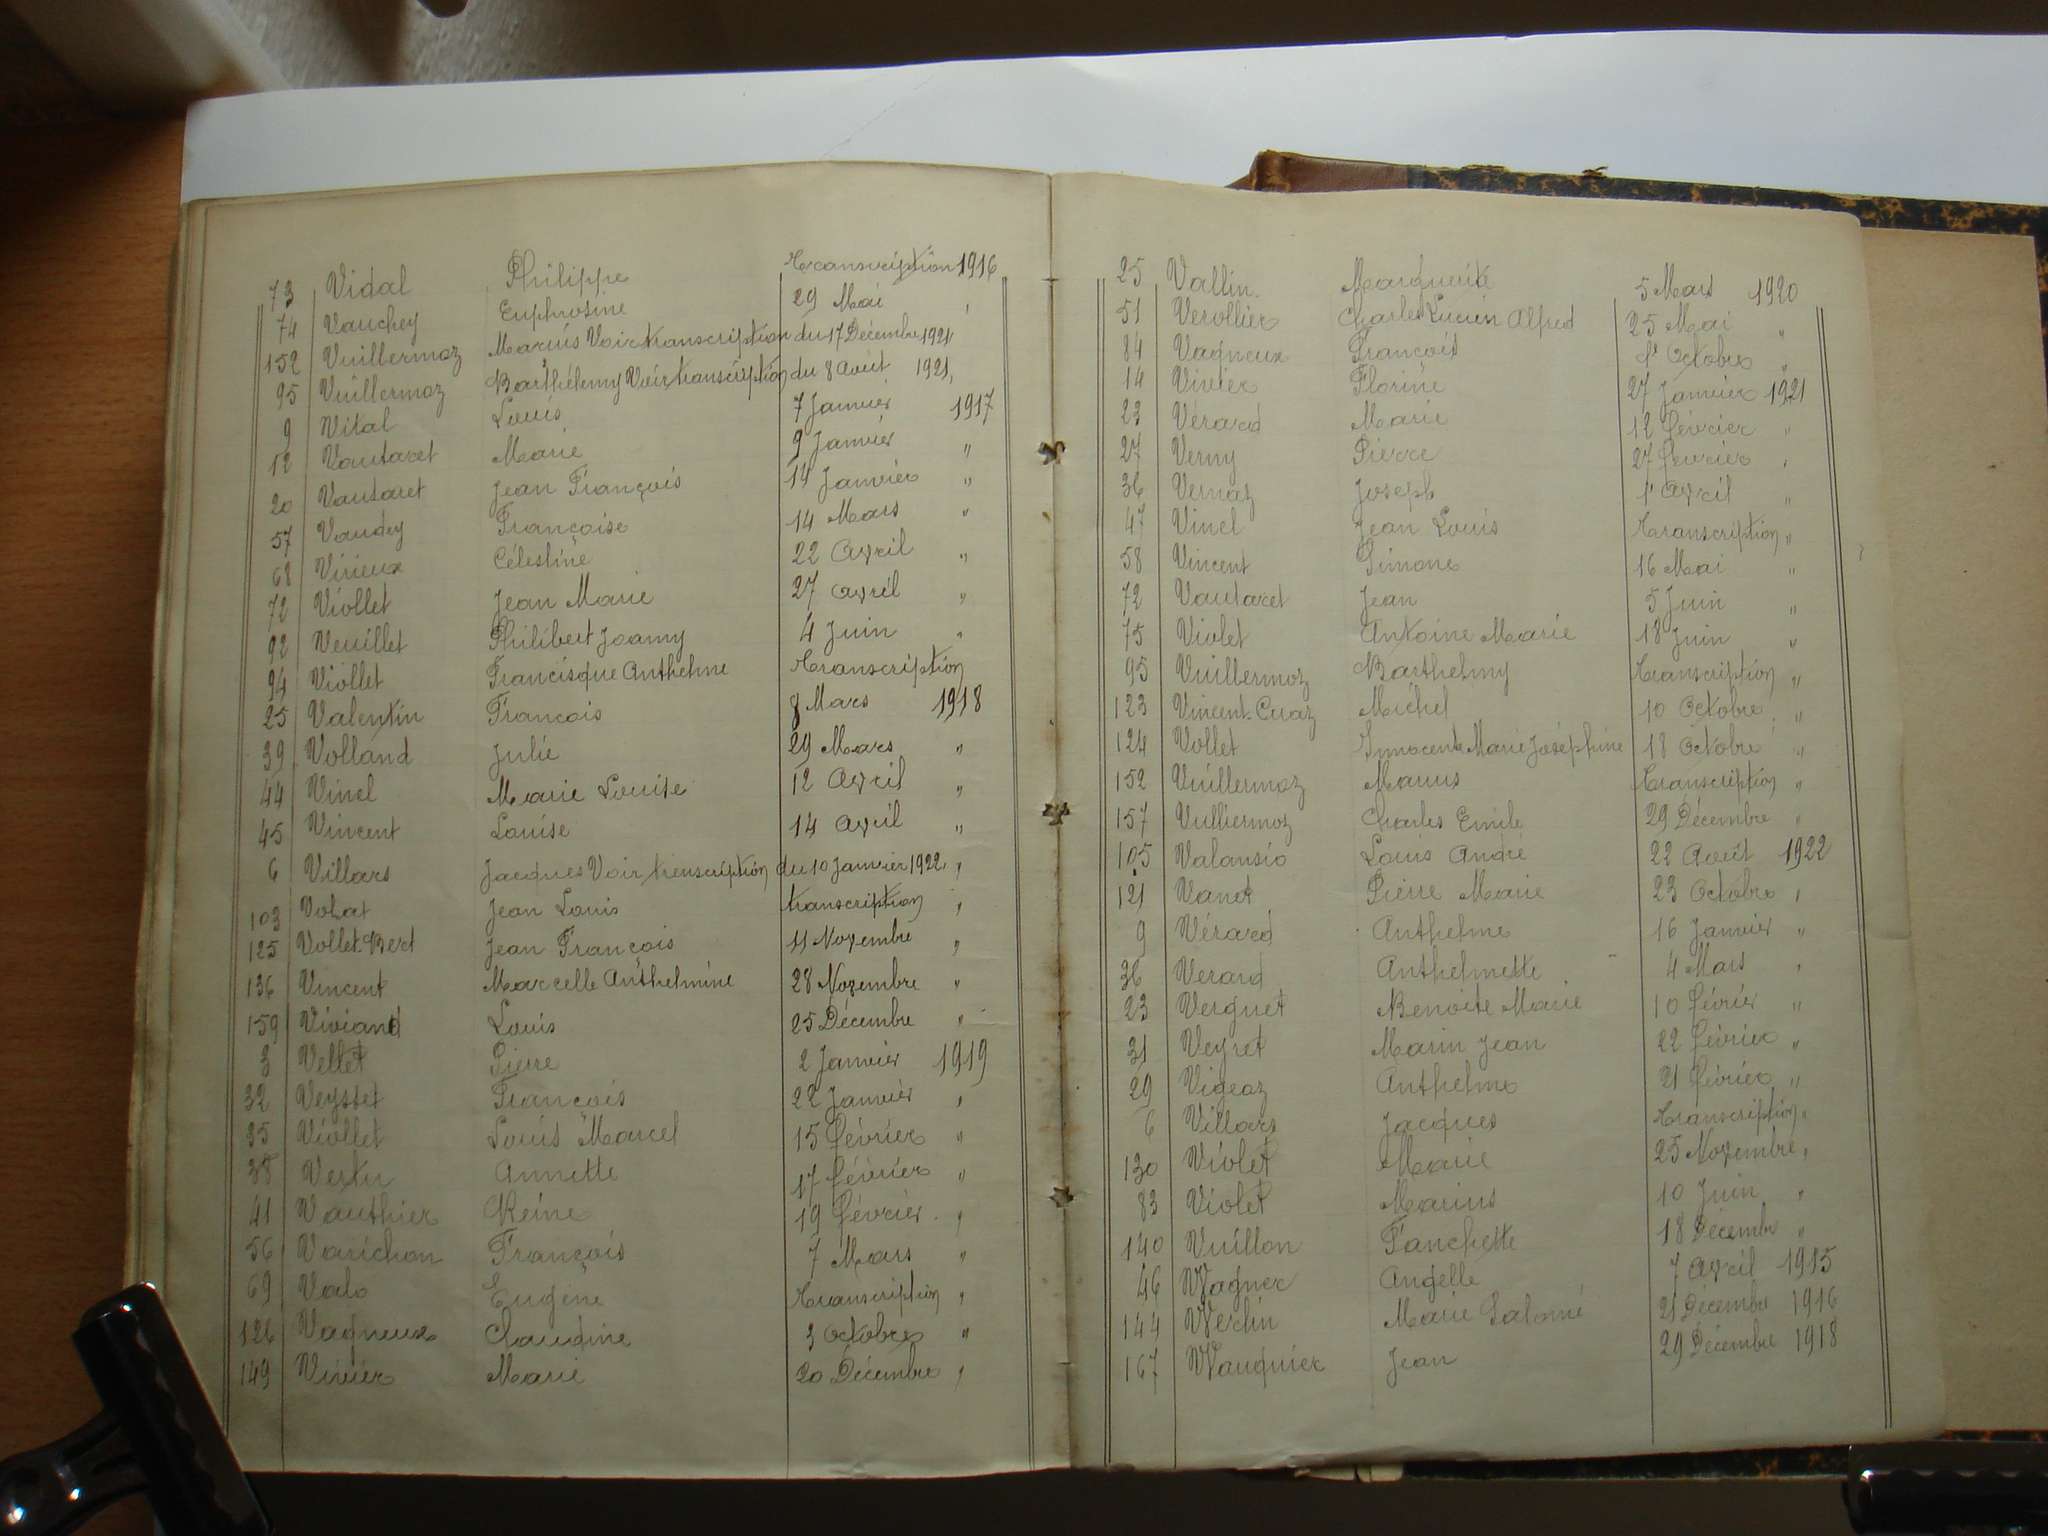 73 Vidal Philippe Transcription 1916
74 Vauchey Euphrosine 29 Mai "
152 Vuillermoz Marius Voir transcription du 17 Décembre 1921
95 Vuillermoz Barthélemy Voir transcription du 8 Août 1921
9 Vital Louis 7 Janvier 1917
12 Vautaret Marie 9 Janvier "
20 Vautaret Jean François 14 Janvier "
57 Vaudey Françoise 14 Mars "
68 Virieux Célestine 22 Avril "
72 Viollet Jean Marie 27 Avril "
92 Veuillet Philibert Joanny 4 Juin "
94 Viollet Francisque Anthelme Transcription
25 Valentin François 8 Mars 1918
39 Volland Julie 29 Mars "
44 Vinel Marie Louise 12 Avril "
45 Vincent Louise 14 Avril "
6 Villars Jacques Voir transcription du 10 Janvier 1922 "
103 Vohat Jean Louis transcription "
125 Vollet-Bert Jean François 11 Novembre "
136 Vincent Marcelle Anthelmine 28 Novembre "
159 Viviand Louis 25 Décembre "
3 Vellet Pierre 2 Janvier 1919
32 Veysset François 22 Janvier "
35 Viollet Louis Marcel 15 février "
38 Annette 17 février "
41 Vauthier Reine 19 février "
56 Varichon François 7 Mars "
69 Valo Eugène Transcription "
126 Vagneux Claudine 3 Octobre "
149 Vivier Marie 20 Décembre "
25 Vallin Marguerite 5 Mars 1920
51 Verollier Charles Lucien Alfred 25 Mai "
84 Vagneux François Octobre "
14 Vivier Florine 27 Janvier 1921
23 Vérard Marie 12 février "
27 Verny Pierre 27 février "
36 Vernaz Joseph 1er Avril "
47 Vinel Jean Louis Transcription "
58 Vincent Simone 16 Mai "
72 Vautaret Jean 5 Juin "
75 Violet Antoine Marie 18 Juin "
95 Vuillermoz Barthelmy Transcription "
123 Vincent-Cuaz Michel 10 Octobre "
124 Vollet Innocente Marie Joséphine 18 Octobre "
152 Vuillermoz Marius Transcription "
157 Vulliermoz Charles Emile 29 Décembre "
105 Valansio Louis André 22 Août 1922
121 Vanet Pierre Marie 23 Octobre "
9 Vérard Anthelme 16 Janvier "
36 Verard Anthelmette 4 Mars "
23 Verguet Benoite Marie 10 février "
31 Veyret Marin Jean 22 février "
29 Vigeaz Anthelme 21 février "
6 Villars Jacques Transcription "
130 Violet Marie 25 Novembre "
83 Violet Marius 10 Juin "
140 Vuillon Fanchette 18 Décembre "
46 Wagner Angelle 7 Avril 1915
144 Werlin Marie Salomé 21 Décembre 1916
167 Wauquier Jean 29 Décembre 1918